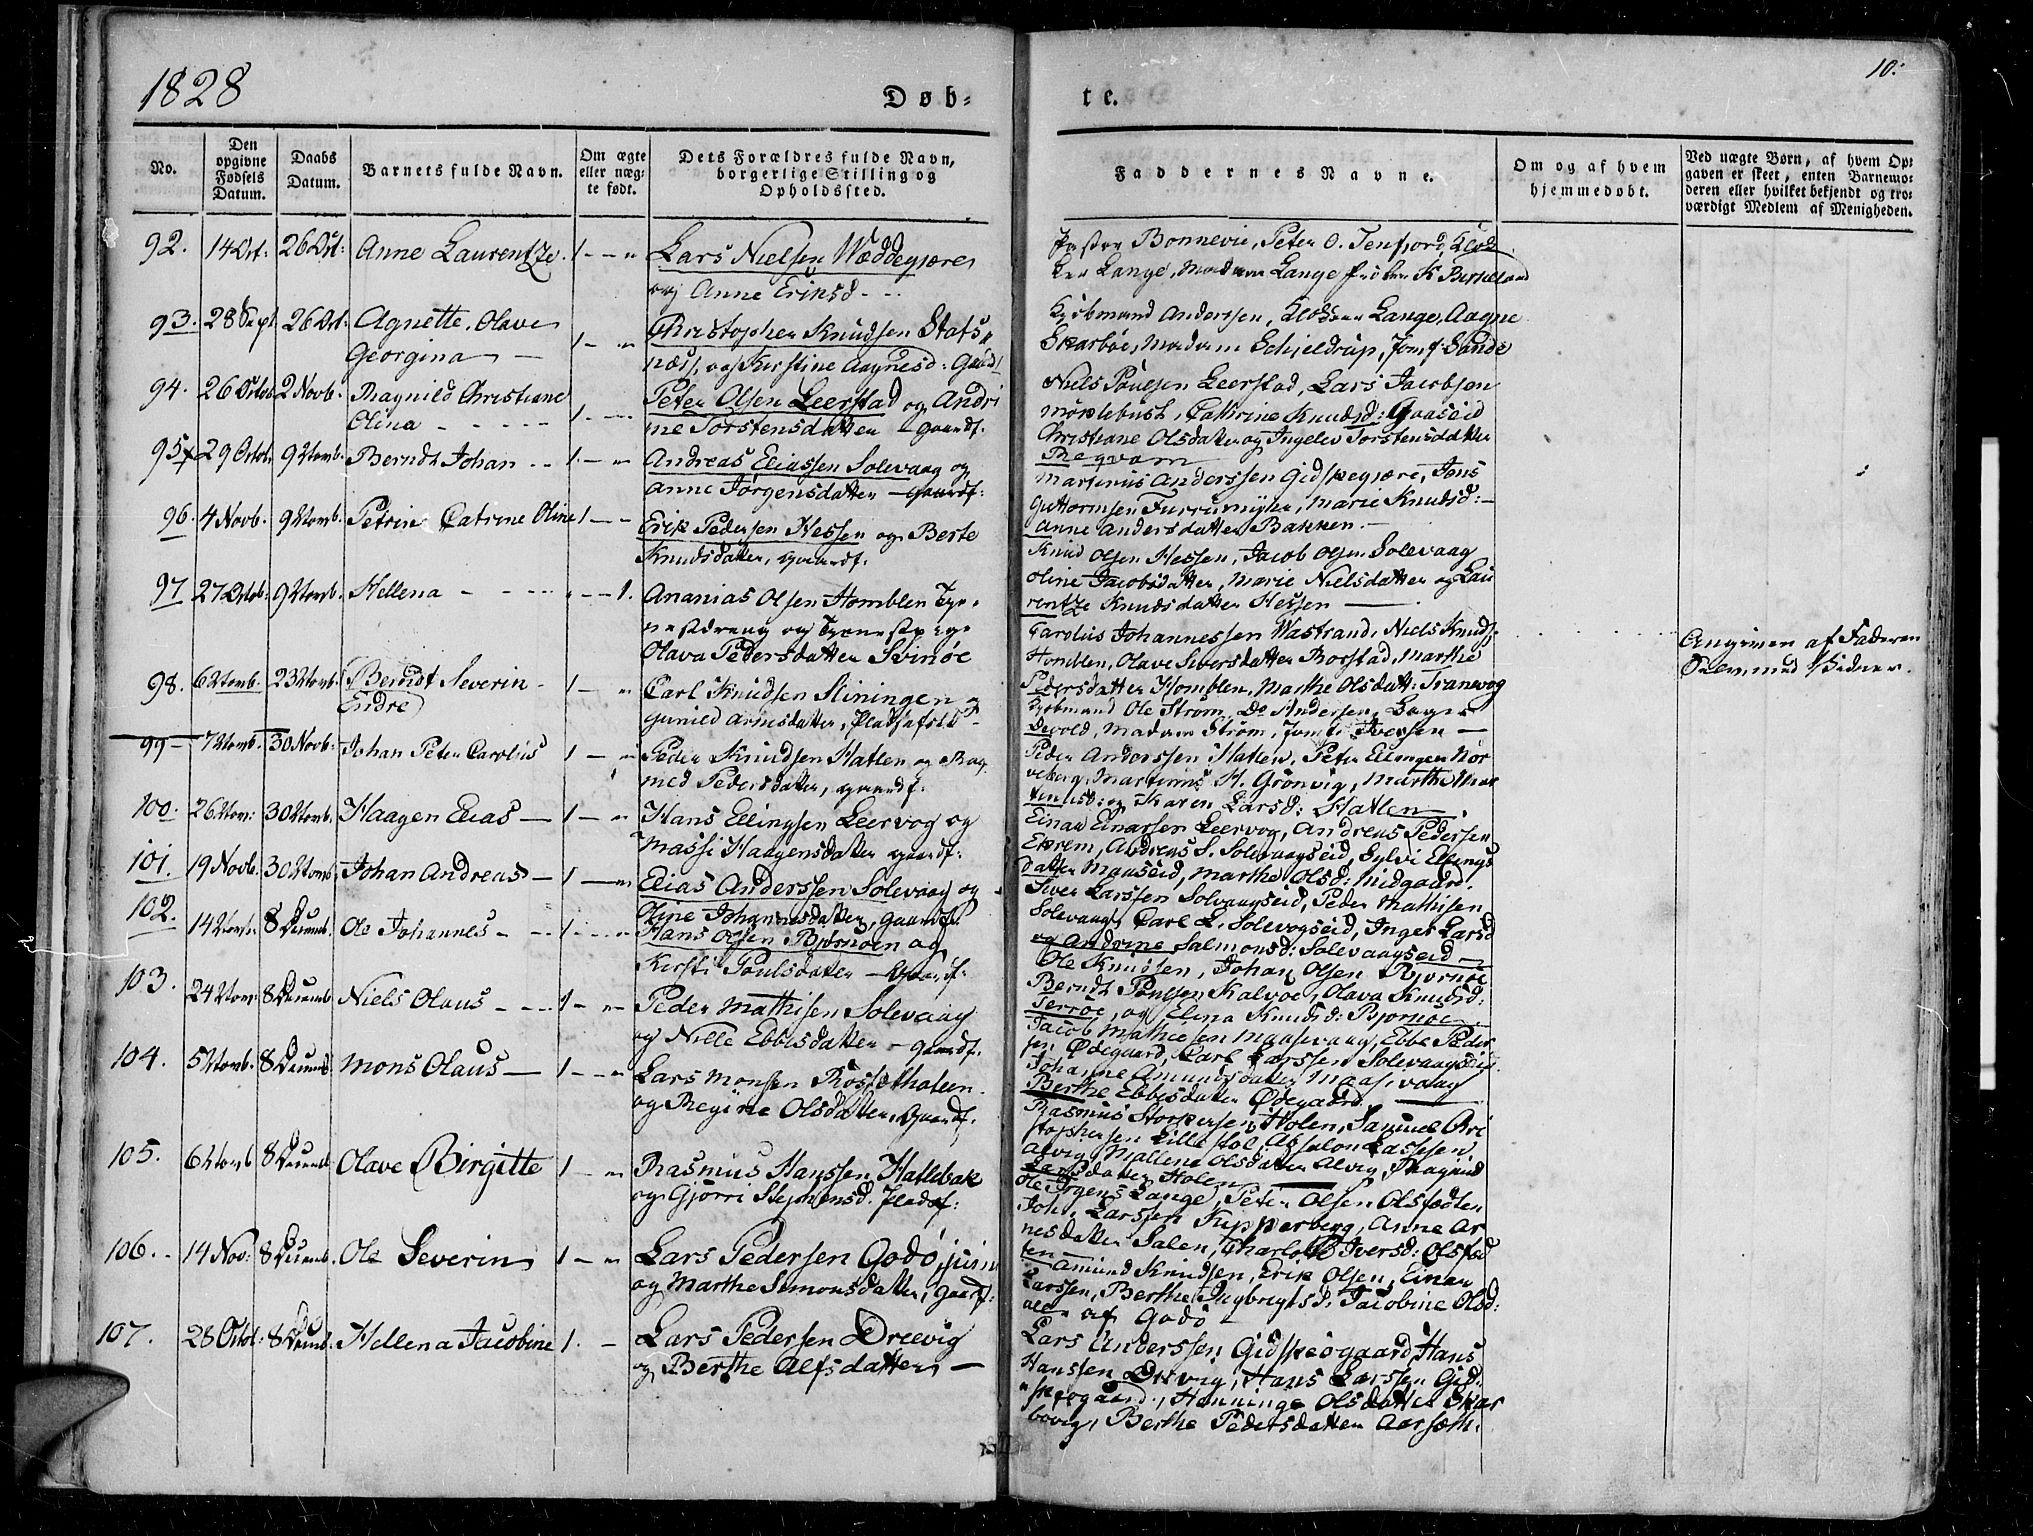 1828
Døb-
te.
10.
No.
Den opgivne Fødsels Datum.
Daabs Datum.
Barnets fulde Navn.
Om ægte eller uægte født.
Dets Forældres fulde Navn, borgerlige Stilling og Opholdssted.
Faddernes Navne.
Om og af hvem hjemmedøbt.
Ved uægte Børn, af hvem Opgaven er skeet, enten Barnemoderen eller hvilket bekjendt og troværdigt Medlem af Menigheden.
92. 14 Oct: 26 Oct: Anne Laurentze. 1. - - "
Lars Nielsen Wæddegjære
og Anne Eriksd - -
Pastor Bonnevie, Peter O. Tenfjord, Klok
ker Lange, Madam Lange
93. 28 Sept 26 Oct: Agnette Olave
Georgina 1 - "
Christopher Knudsen Stafs
næs, og Kirstine Aagnesd: Gaardf
Kjøbmand Anderssen, Klokker Lange, Aagne
Skarbøe, Madam Schjeldrup, Jomf: Sande
94. 26 Octob 2 Novb. Ragnild Christiane
Olina - - - - - 1.
Peter Olsen Leerstad og Andri
ne Torstensdatter - Gaardf.
Niels Poulsen Leerstad, Lars Jacobsen
Mørklebust, Cathrine Knudsd: Gaaseid
Christiane Olsdatter og Ingelev Torstensdatter
Megvam
95 29 Octob. 9 Novb. Berndt Johan - - 1. - "
Andreas Eliassen Solevaag og
Anne Jørgensdatter - Gaardf:
Martinus Anderssen Gidskegjære, Jens
Guttormsen Furremyhr, Marie Knudsd: -
Anne Andersdatter Bakken. -
96. 4 Novb. 9 Novb. Petrine Catrine Oline 1 - -
Erik Pedersen Hessen og Berte
Knudsdatter, Gaardf.
Knud Olsen Hessen, Jacob Olsen Solevaag
Oline Jacobsdatter, Marie Nielsdatter og Lau
rentze Knudsdatter Hessen
97 27 Octob: 9 Novb. Hellena - - - - - - 1.
Ananias Olsen Homblen Tje-
nestdreng og Tjenestpige
Olava Pedersdatter Svinøe
Carolus Johannessen Wastrand, Niels Knuds:
Homblen, Olave Siversdatter Borstad, Marthe
Pedersdatter Homblen, Marthe Olsdatt: Tranevog
Angiven af Faderen
98. 6 Novb. 23 Novb. Berndt Severin
Endre 1 - "
Carl Knudsen Stiningen og
Gunild Arnesdatter, Pladsfolk
Kjøbmand Ole Strøm, Do Andersen,
Devold, Madam Strøm, Jomf: Iversen -
99 - 7 Novb. 30 Novb: Johan Peter Carolus 1 - "
Peder Knudsen Hatlen og Rag
ned Pedersdatter, Gaardf.
Peder Anderssen Hatlen, Peter Ellingsen Nør
veberg, Martinus H. Grønvig, Marthe Mar
tinusd: og Karen Larsd: Hatlen
100. 26 Nov: 30 Novb. Haagen Elias - 1 - "
Hans Ellingsen Leervog og
Massi Haagensdatter Gaardf.
Einar Einarsen Leervog, Andreas Pedersen
Ekrem, Andreas S. Solevaagseid, Sylvi Ellings
datter Maaseid, Marthe Olsd: Midgaard.
101. 19 Novb. 30 Novb. Johan Andreas - 1 - "
Elias Anderssen Solevaag og
Oline Johannesdatter, Gaardf.
Siver Larssen Solvaagseid, Peder Mathisen
Solevaag, Carl L. Solevogseid, Inger Larsd
og Andrine Salmonsd: Solevaagseid -
102. 14 Novb. 8 Decemb. Ole Johannes - - - 1. - - "
Hans Olsen Bjørnøen og
Kirsti Poulsdatter - Gaardf.
Ole Knudsen, Johan Olsen Bjørnøe
Berndt Poulsen Kalvøe, Olava Knudsd:
Terrøe, og Elina Knudsd: Bjørnøe
103. 24 Nov: 8 Decemb Niels Olaus - - - 1 - "
Peder Mathisen Solevaag
og Nille Ebbesdatter - Gaardf.
Jacob Mathiesen Maasevaag, Ebbe Peder
sen Ødegaard, Karl Larssen Solevaagseid
Johanne Amundsdatter Maasevaag
Berthe Ebbesdatter Ødegaard
104. 5 Novb. 8 Decemb. Mons Olaus - 1 - - "
Lars Monsen Røssetholeen
og Regine Olsdatter, Gaardf.
Rasmus Størkersen Holen, Samuel Kri
stophersen Lillestøl, Absalon Lassen,
Alvig, Mallene Olsdatter Alvig, Ragnild
Larsdatter Holen
105. 6 Novb 8 Decemb Olave Birgitte 1 - "
Rasmus Hanssen Hatlebak
og Gjørri Stephensd. Pladsf:
Ole Irgens Lange, Peter Olsen Olsfødten
John Larssen Kipperberg, Anne Ar
nesdatter Salen, Charlotte Iversd: Olsfød
ten
106. 14 Nov: 8 Decemb. Ole Severin 1 - "
Lars Pedersen Godø,
og Marthe Simonsdatter, Gaardf:
Amund Knudsen, Erik Olsen, Einar
Larssen, Berthe Ingbregtsd. Jacobine Olsd:
alle af Godø -
107. 28 Octob: 8 Decemb. Hellena Jacobine 1. -
Lars Pedersen Dreevig
og Berthe Alfsdatter -
Lars Anderssen Gidskeøgaard, Hans
Hanssen Drevig, Hans Larssen Gid-
skeøgaard, Henninge Olsdatter Skar
bøvig, Berthe Pedersdatter Aarsæth.